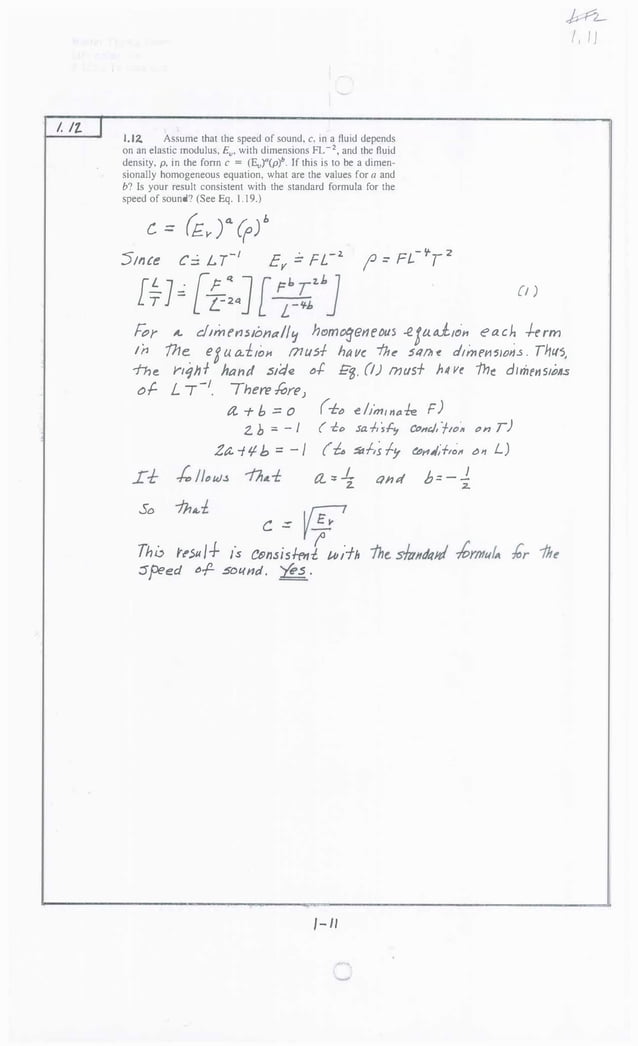 1.11
1.12
1.12 Assume that the speed of sound, c, in a fluid depends
on an elastic modulus, Eᵥ, with dimensions FL⁻², and the fluid
density, ρ, in the form c = (Eᵥ)ᵃ(ρ)ᵇ. If this is to be a dimen-
sionally homogeneous equation, what are the values for a and
b? Is your result consistent with the standard formula for the
speed of sound? (See Eq. 1.19.)
c = (Eᵥ)ᵃ(ρ)ᵇ
Since c ≐ LT⁻¹ Eᵥ ≐ FL⁻² ρ = FL⁻⁴T²
[L/T] ≐ [Fᵃ/L⁻²ᵃ] [FᵇT²ᵇ/L⁻⁴ᵇ] (1)
For a dimensionally homogeneous equation each term
in the equation must have the same dimensions. Thus,
the right hand side of Eq. (1) must have the dimensions
of LT⁻¹. Therefore,
a + b = 0 (to eliminate F)
2b = -1 (to satisfy condition on T)
2a + 4b = -1 (to satisfy condition on L)
It follows that a = 1/2 and b = - 1/2
So that
c = √(Eᵥ/ρ)
This result is consistent with the standard formula for the
speed of sound. Yes.
1-11